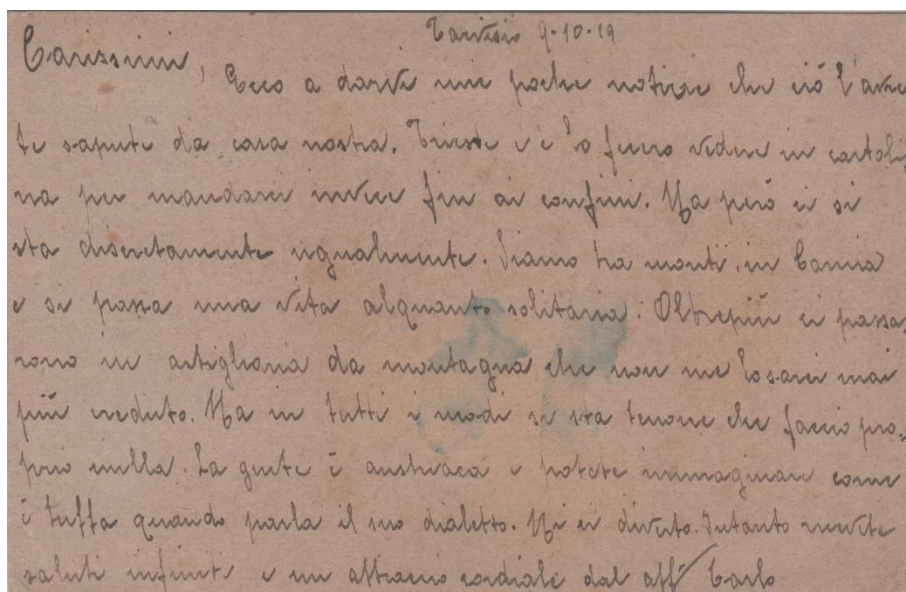 Tarvisio 9-10-19
Carissimi,
Ecco a darvi mie poche notizie che ciò l'avre
te sapute da casa nostra. Trieste ce lo fecero vedere in cartoli,
na per mandarci invece fin ai confini. Ma però ci si
sta discretamente ugualmente. Siamo tra monti, in Carnia
e si passa una vita alquanto solitaria. Oltrepiù ci passa,
rono in artiglieria da montagna che non me lo sarei mai
più creduto. Ma in tutti i modi si sta benone che faccio pro=
prio nulla. La gente è austriaca e potete immaginare come
è buffa quando parla il suo dialetto. Mi ci diverto. Intanto ricevete
saluti infiniti e un abbraccio cordiale dal aff. Carlo